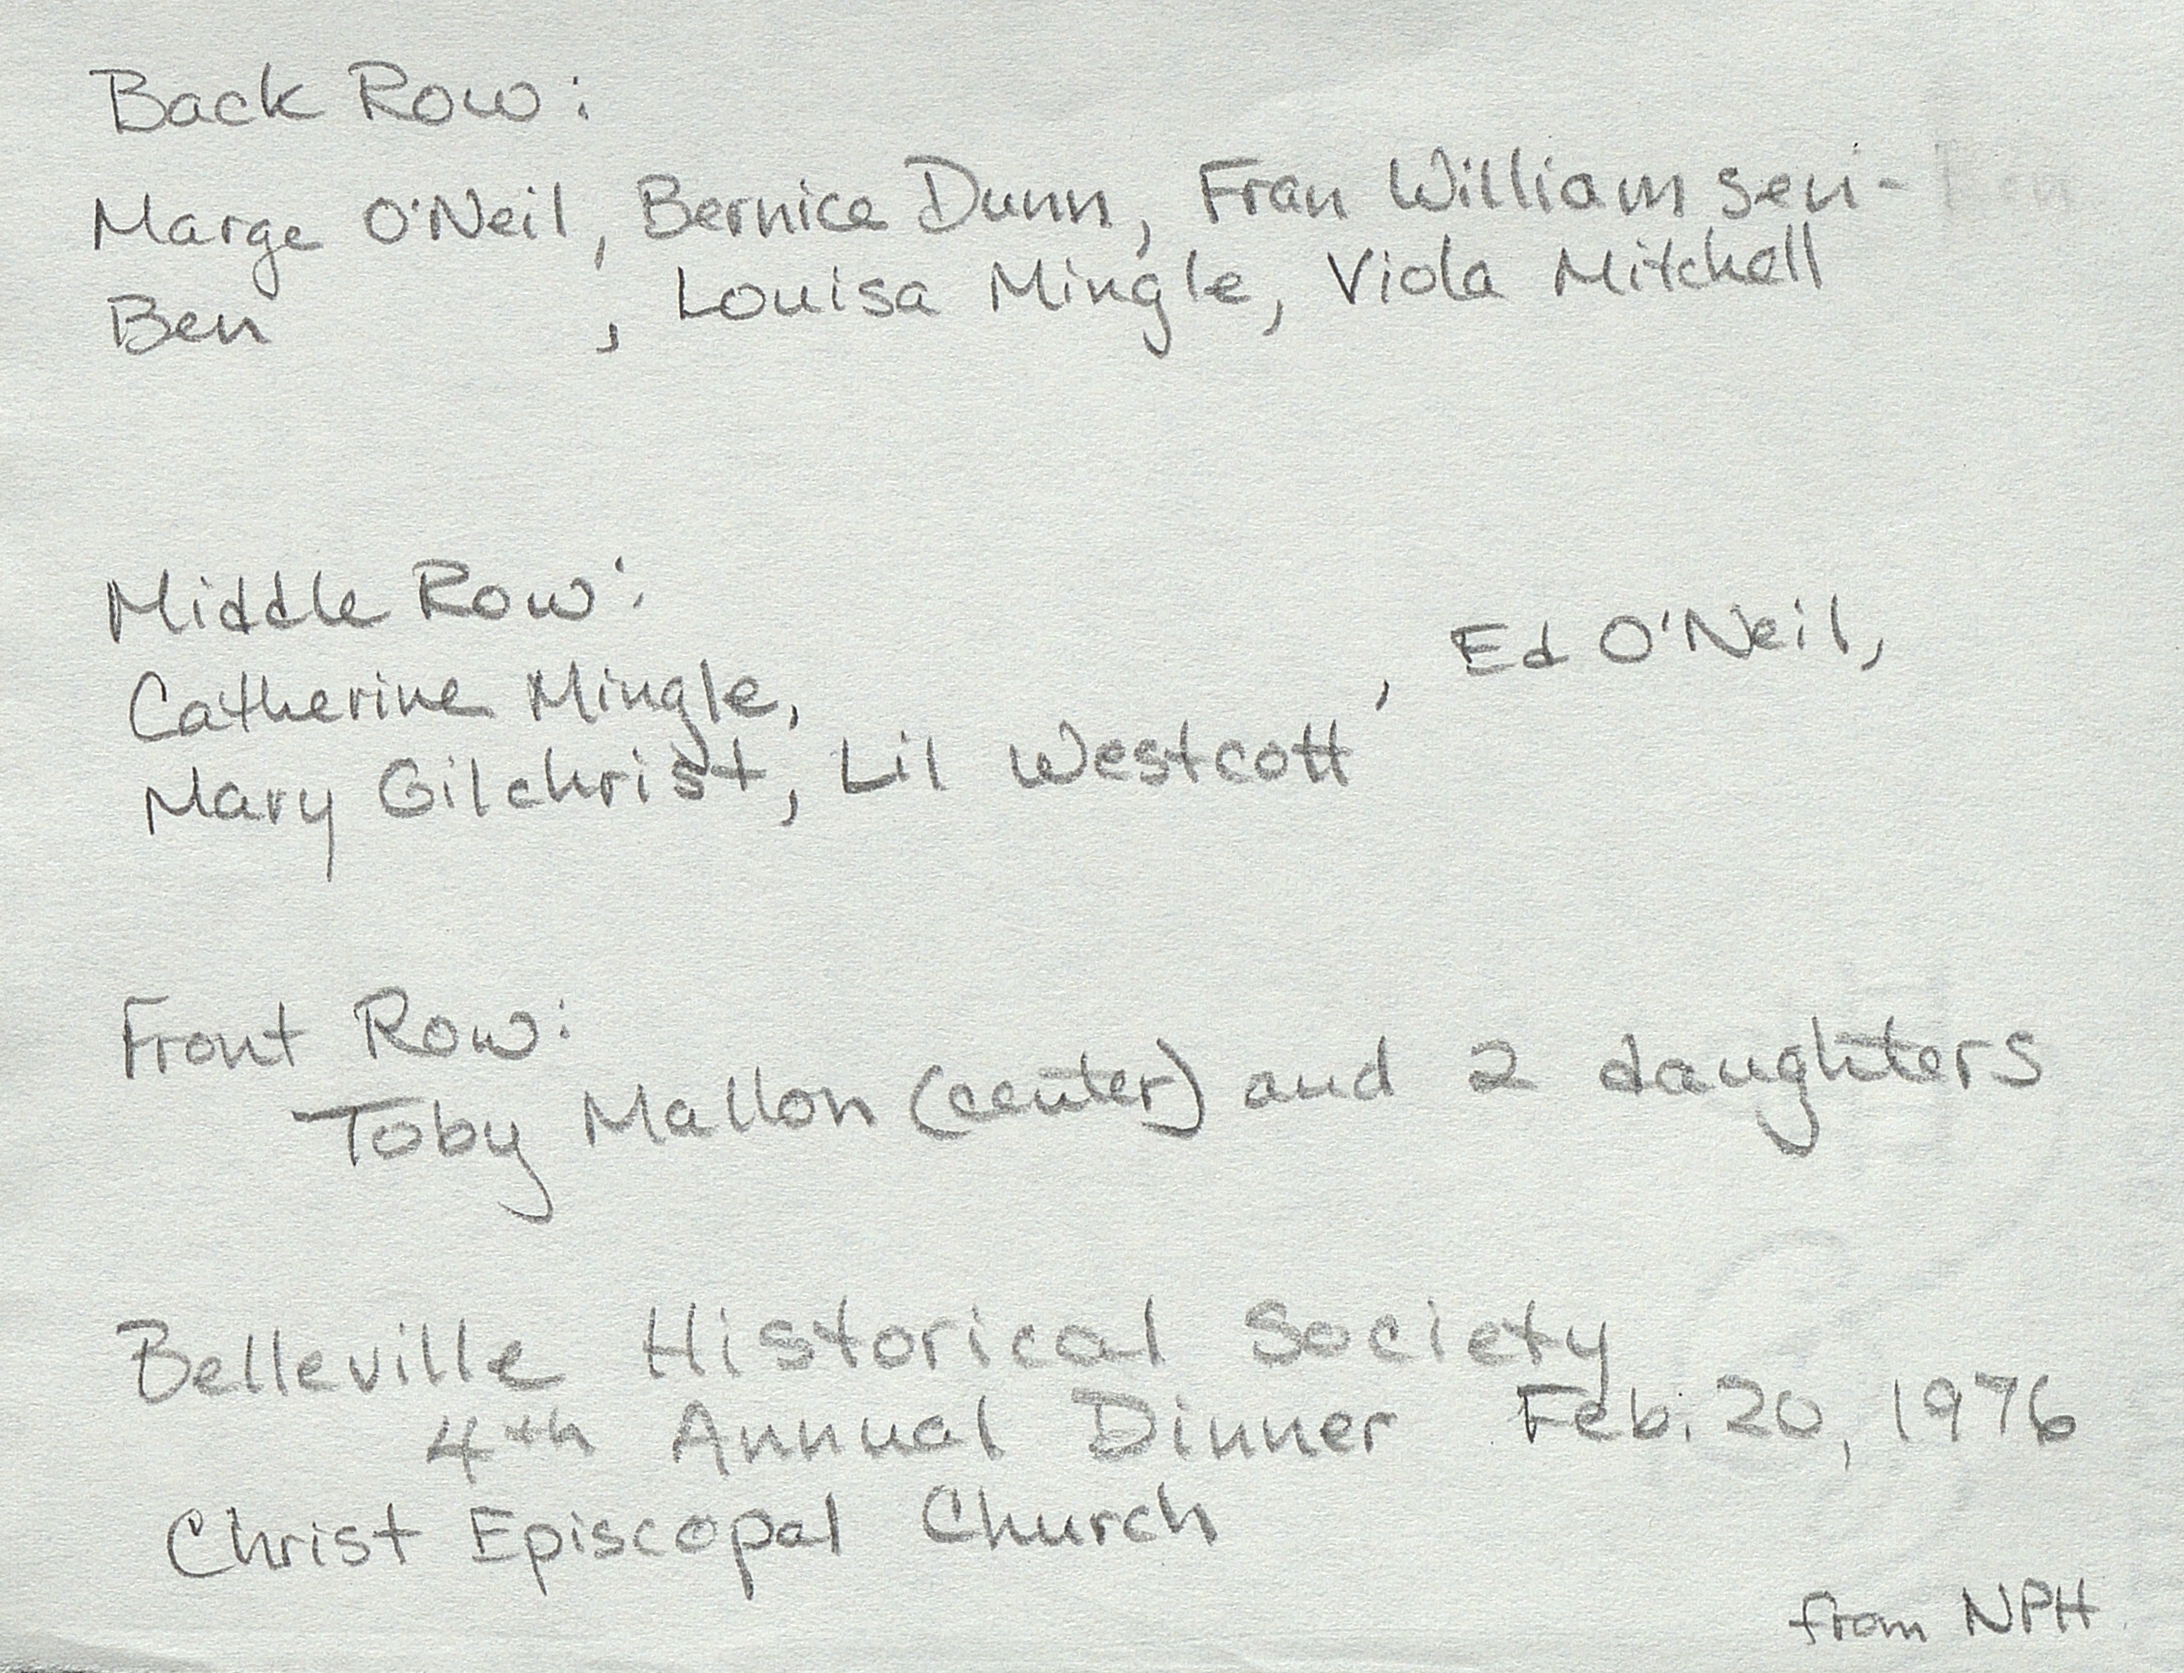 Back Row:
Marge O'Neil, Bernice Dunn, Fran Williamsen-
Ben , Louisa Mingle, Viola Mitchell
Middle Row:
Catherine Mingle, , Ed O'Neil,
Mary Gilchrist, Lil Westcott
Front Row:
Toby Mallon (center) and 2 daughters
Belleville Historical Society
4th Annual Dinner Feb. 20, 1976
Christ Episcopal Church
from NPH